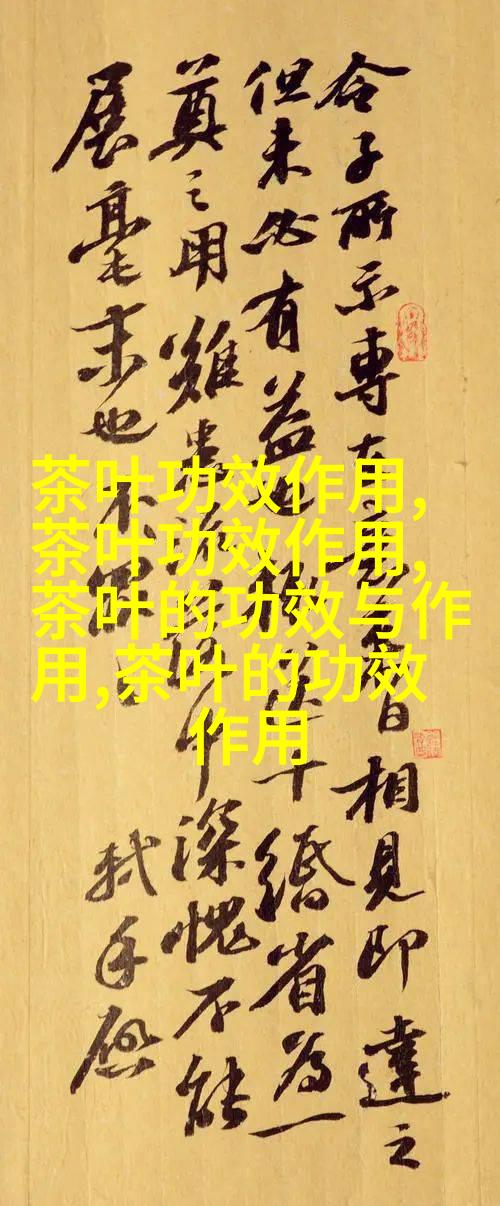 子所示專在日相見即達之
但未必有益也十緡省為一
奠之用中深愧不能
展毫末也不罪
軾手啟
茶叶功效作用,
茶叶功效作用,
茶叶的功效与作
用,茶叶的功效
作用